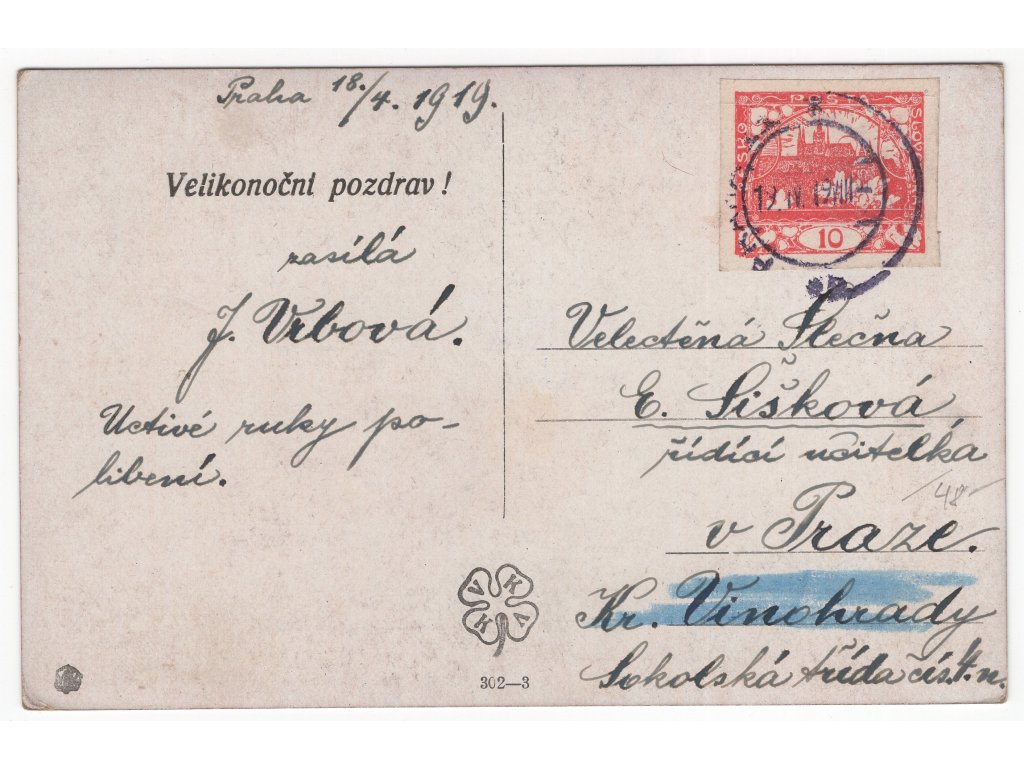 Praha 18./4. 1919.
Velikonoční pozdrav!
zasílá
J. Vrbová.
Uctivé ruky po-
líbení.
POŠTA
ČESKO
SLOV
10
19. IV. 19
Velectěná Slečna
E. Šišková
řídící učitelka
48
v Praze.
Kr. Vinohrady
Sokolská třída čís. 4. n.
K V K V
302—3